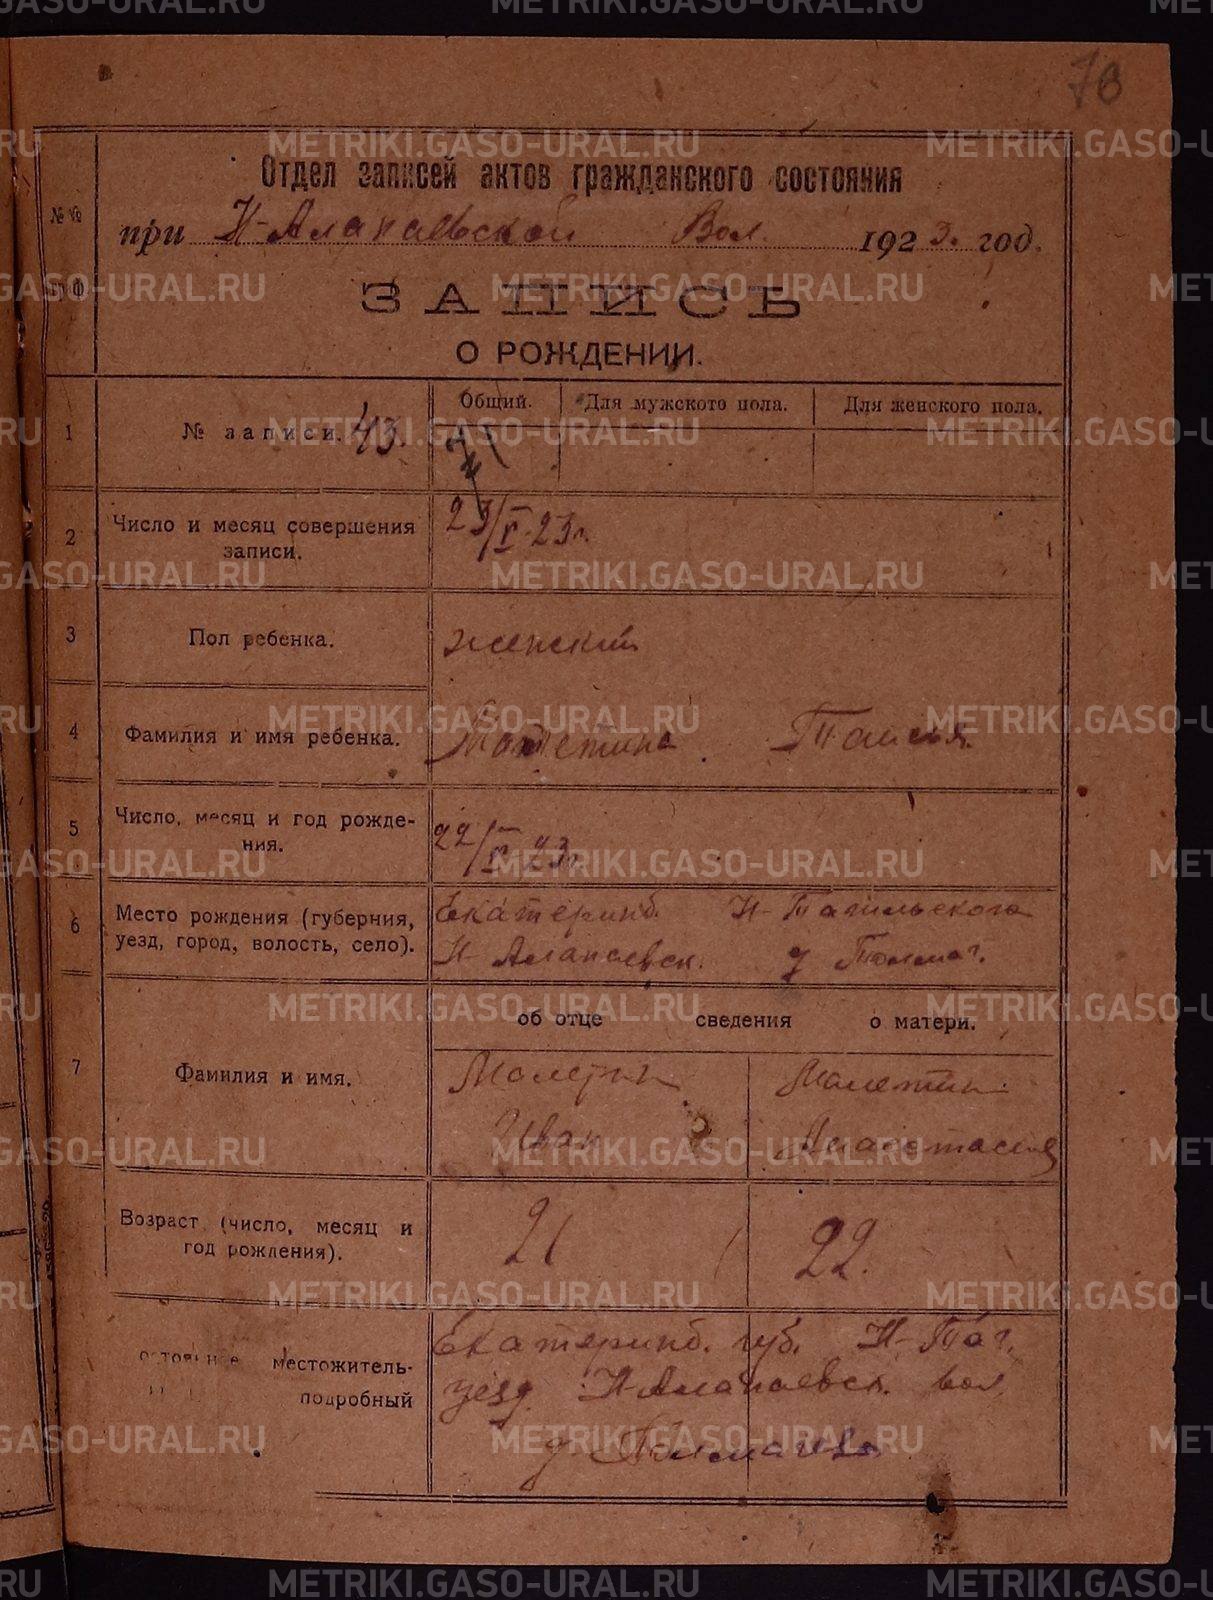 78
Отдел записей актов гражданского состояния
№ №
при Н-Алапаевской Вол. 1923. год.
ЗАПИСЬ
О РОЖДЕНИИ.
Общий. Для мужского пола. Для женского пола.
1 № записи. 43.
2 Число и месяц совершения записи. 23/V-23г.
3 Пол ребенка. женский
4 Фамилия и имя ребенка. Таисья.
5 Число, месяц и год рожде-
ния. 22/V 23г.
6 Место рождения (губерния, Екатеринб. Н-Тагильского
уезд, город, волость, село). Н-Алапаевск. д Толмач.
об отце сведения о матери.
7 Фамилия и имя. Малетин Малетин
Иван Анастасия
Возраст (число, месяц и
год рождения). 21 22.
Екатеринб. губ. Н-Таг.
местожитель- уезд. Н-Алапаевск. вол
подробный
д. Толмачева
METRIKI.GASO-URAL.RU